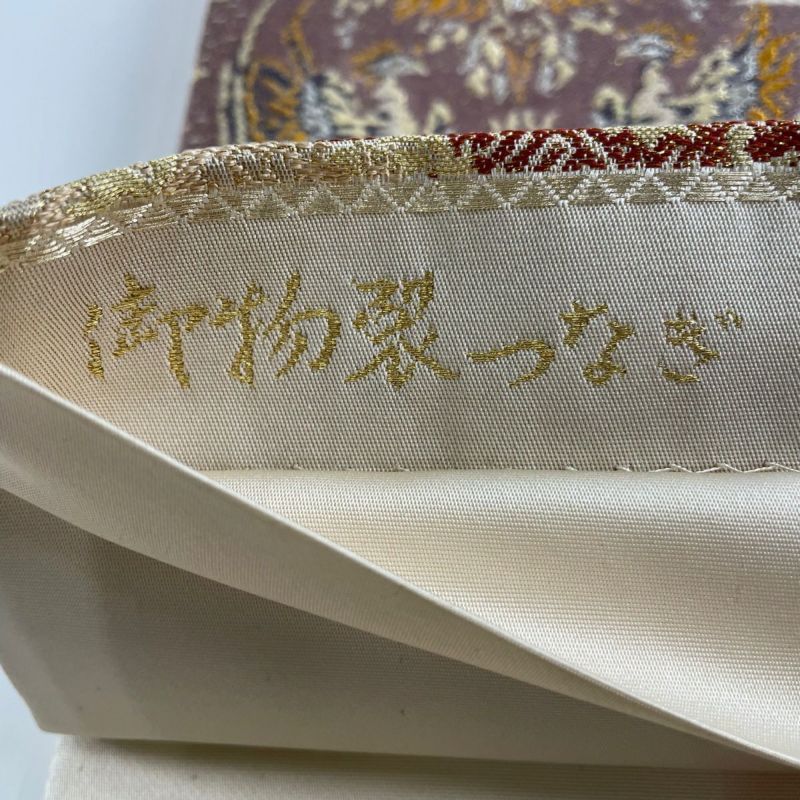 御物裂つなぎ